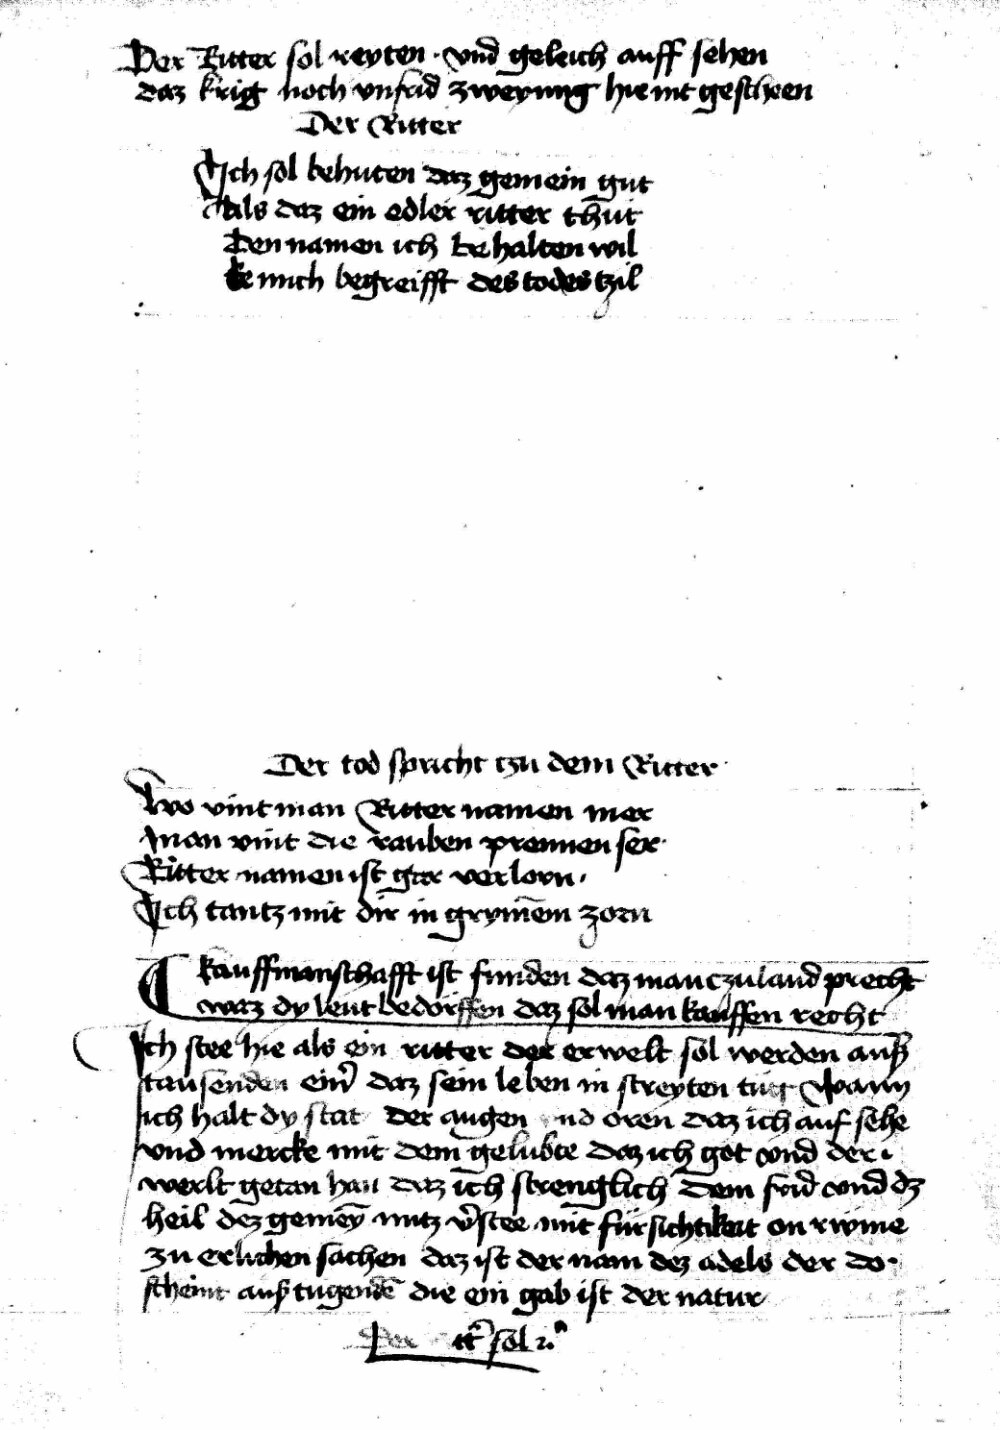 Der Ritter sol reyten · vnd geleich auff sehen
daz krig noch vnfrid zweyung hie nit gescheen
Der Ritter
Ich sol behuten daz gemein gut
Als daz ein edler ritter thut
Den namen ich behalten wil
be mich begreifft des todes tzil
Der tod spricht tzu dem Ritter
Wo vint man Ritter namen mer
Man vint die rauben prennen ser
Ritter namen ist gar verlorn ·
Ich tantz mit dir in grymēm zorn
kauffmanschafft ist funden daz man czu land precht
waz dy leut bedorffen daz sol man kauffen recht
Ich stee hie als ein ritter der erwelt sol werden auß
tausenden ein̄ daz sein leben in streyten tug Wann
ich halt dy stat der augen nd oren daz ich auf sehe
vnd mercke mit dem gelubte daz ich got vnd der
werlt getan han daz ich strenglich dem frid vnd dz
heil dez gemey̅ nutz v̄stee mit fursichtikeit on
zu erlichen sachen daz ist der nam dez adels der do
scheint auß tugendē die ein gab ist der natur
Der tt̄ sol